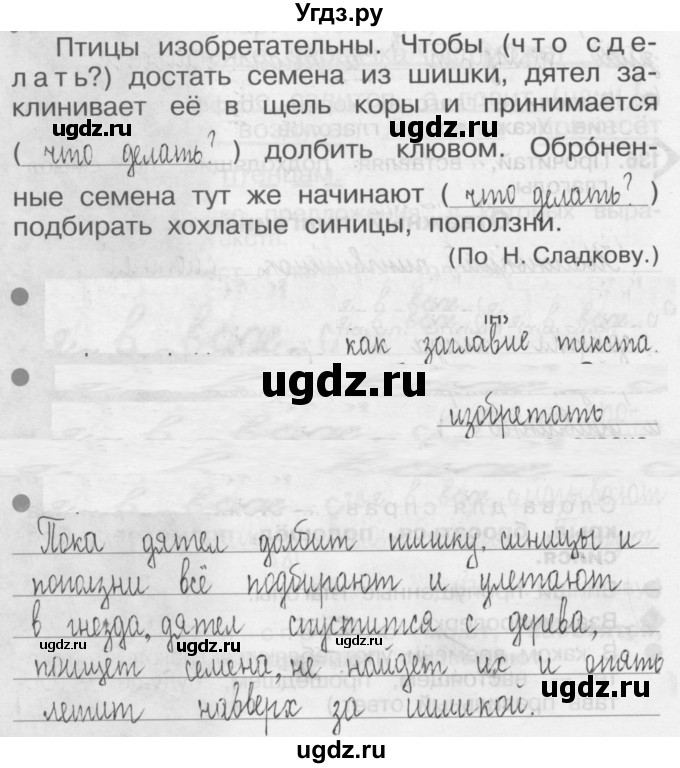 Угдз.ру
Птицы изобретательны. Чтобы (что сде-
лать?) достать семена из шишки, дятел за-
клинивает её в щель коры и принимается
( что делать? ) долбить клювом. Обро́нен-
ные семена тут же начинают ( что делать? )
подбирать хохлатые синицы, поползни.
(По Н. Сладкову.)
как заглавие текста.
изобретать
Пока дятел долбит шишку, синицы и
поползни всё подбирают и улетают
в гнезда, дятел спустится с дерева,
поищет семена, не найдет их и опять
летит наверх за шишкой.
ugdz.ru
ugdz.ru
ugdz.ru
ugdz.ru
ugdz.ru
ugdz.ru
ugdz.ru
ugdz.ru
ugdz.ru